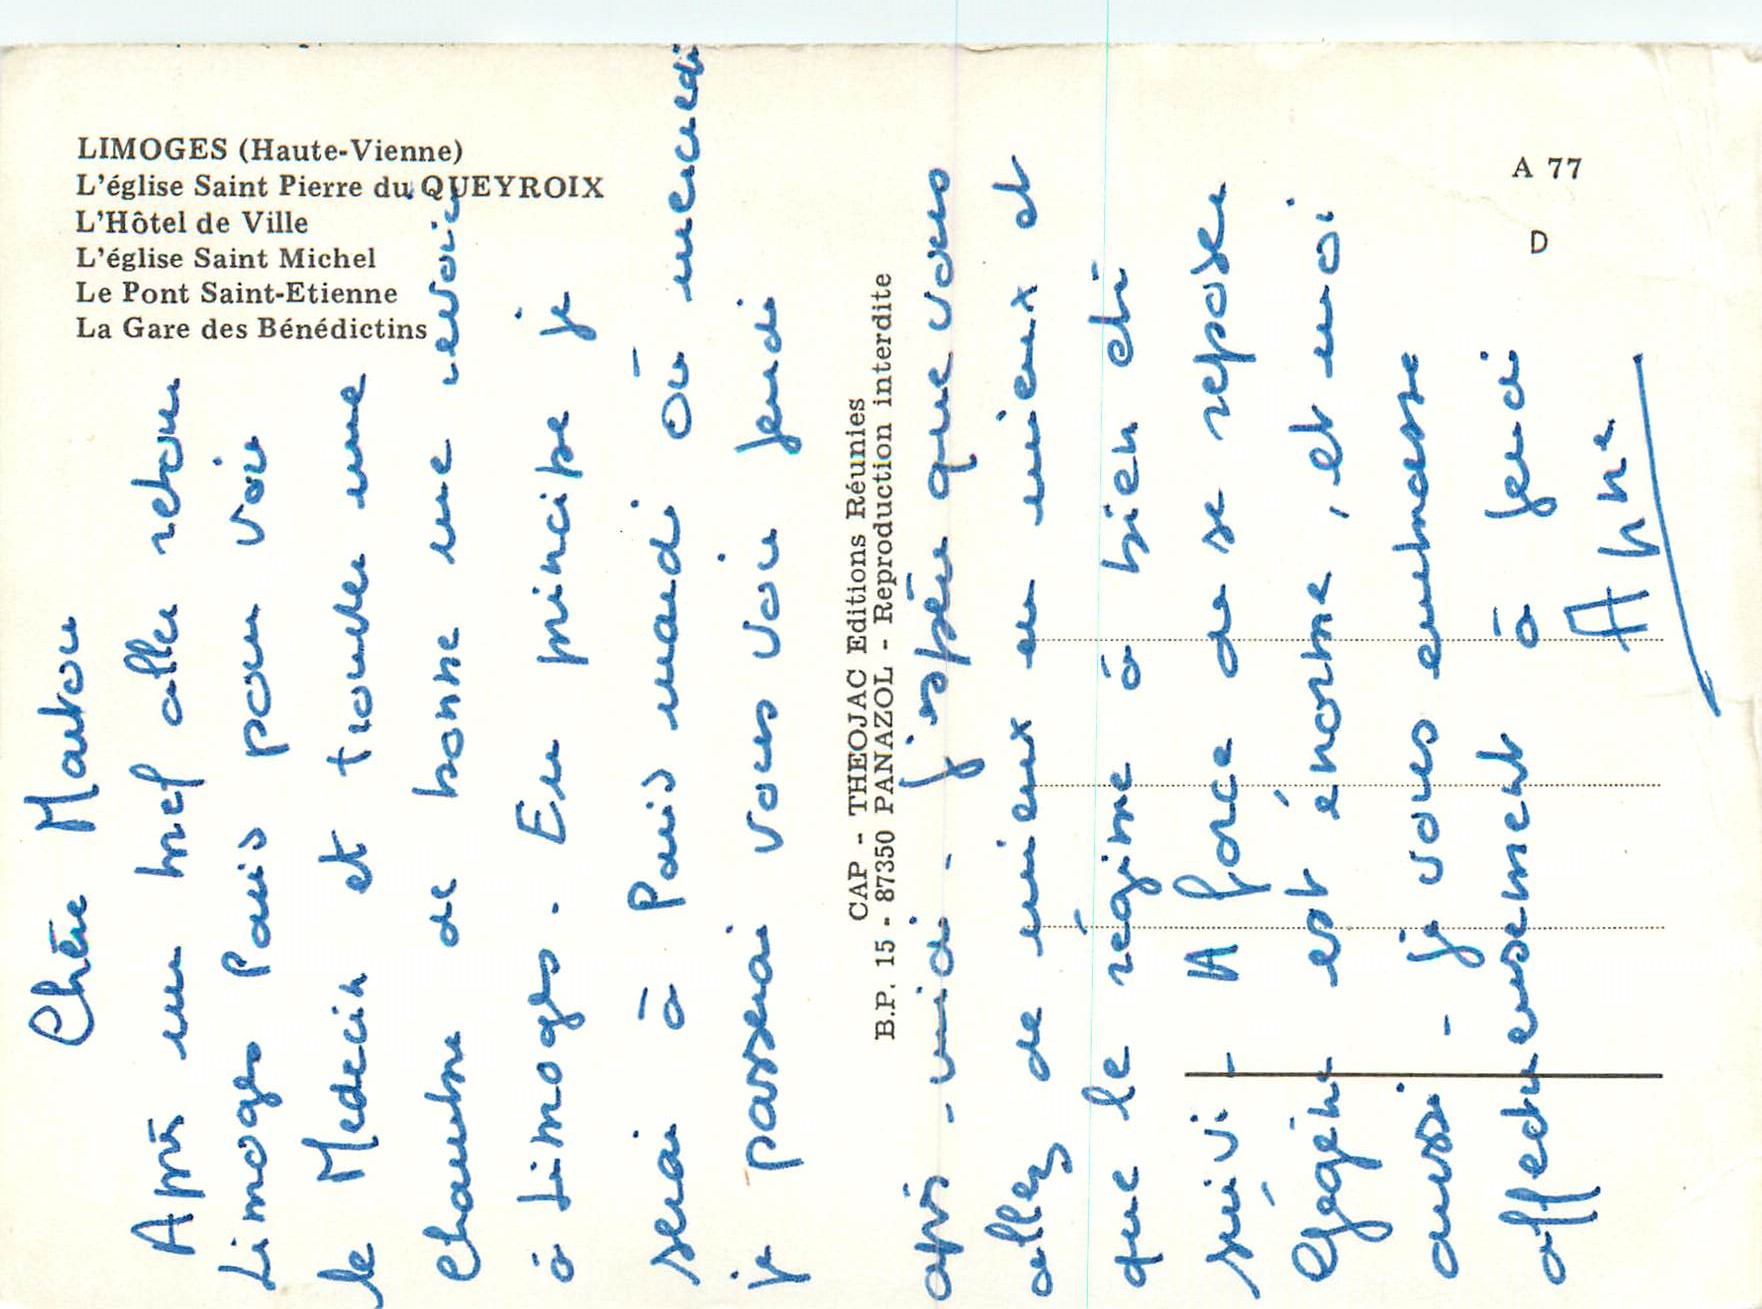 LIMOGES (Haute-Vienne)
L'église Saint Pierre du QUEYROIX
L'Hôtel de Ville
L'église Saint Michel
Le Pont Saint-Etienne
La Gare des Bénédictins
A 77
D
CAP - THEOJAC Editions Réunies
B.P. 15 - 87350 PANAZOL - Reproduction interdite
Chère
Après un bref aller retour
Limoges Paris pour voir
le Medecin et trouver une
chambre de bonne me revoici
à Limoges. En principe je
serai à Paris mardi ou mercredi
je passerai vous voir jeudi
après-midi - j'espère que vous
allez de mieux en mieux et
que le régime a bien été
suivi - A force de se reposer
est énorme, et moi
aussi - je vous embrasse
affectueusement à jeudi
Anne